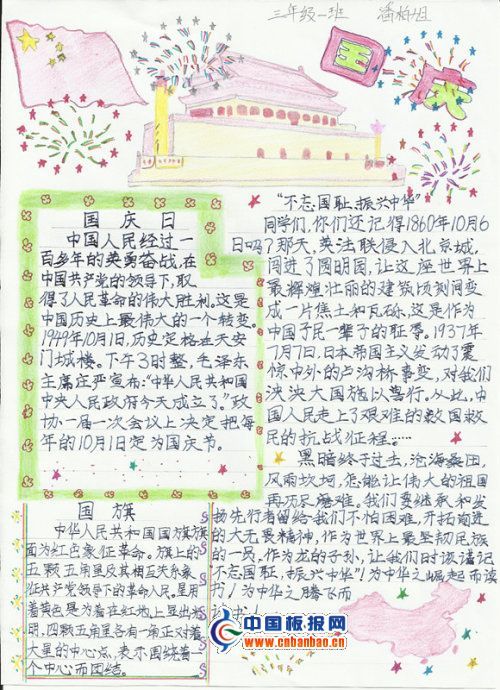 三年级一班 潘柏旭
国庆
国庆日
中国人民经过一
百多年的英勇奋战,在
中国共产党的领导下,取
得了人民革命的伟大胜利,这是
中国历史上最伟大的一个转变。
1949年10月1日,历史定格在天安
门城楼。下午3时整,毛泽东
主席庄严宣布:“中华人民共和国
中央人民政府今天成立了。”政
协一届一次会议上决定把每
年的10月1日定为国庆节。
“不忘国耻,振兴中华”
同学们,你们还记得1860年10月6
日吗?那天,英法联侵入北京城,
闯进了圆明园,让这座世界上
最辉煌壮丽的建筑顷刻间变
成一片焦土和瓦砾,这是作为
中国子民一辈子的耻辱。1937年
7月7日,日本帝国主义发动了震
惊中外的卢沟桥事变,对我们
泱泱大国施以兽行。从此,中
国人民走上了艰难的救国救
民的抗战征程……
黑暗终于过去,沧海桑田,
风雨坎坷,怎能让伟大的祖国
再历尽磨难。我们要继承和发
扬先行者留给我们不怕困难,开拓前进
的大无畏精神,作为世界上最坚韧民族
的一员,作为龙的子孙,让我们时谨记
不忘国耻,振兴中华!为中华之崛起而读
书!为中华之腾飞而
国旗
中华人民共和国国旗旗
面为红色象征革命。旗上的
五颗五角星及其相互关系象
征共产党领导下的革命人民。星用
着黄色是为着在红地上显出光
明,四颗五角星各有一角正对着
大星的中心点,表示围绕着一
个中心而团结。
中国板报网
www.cnbanbao.cn